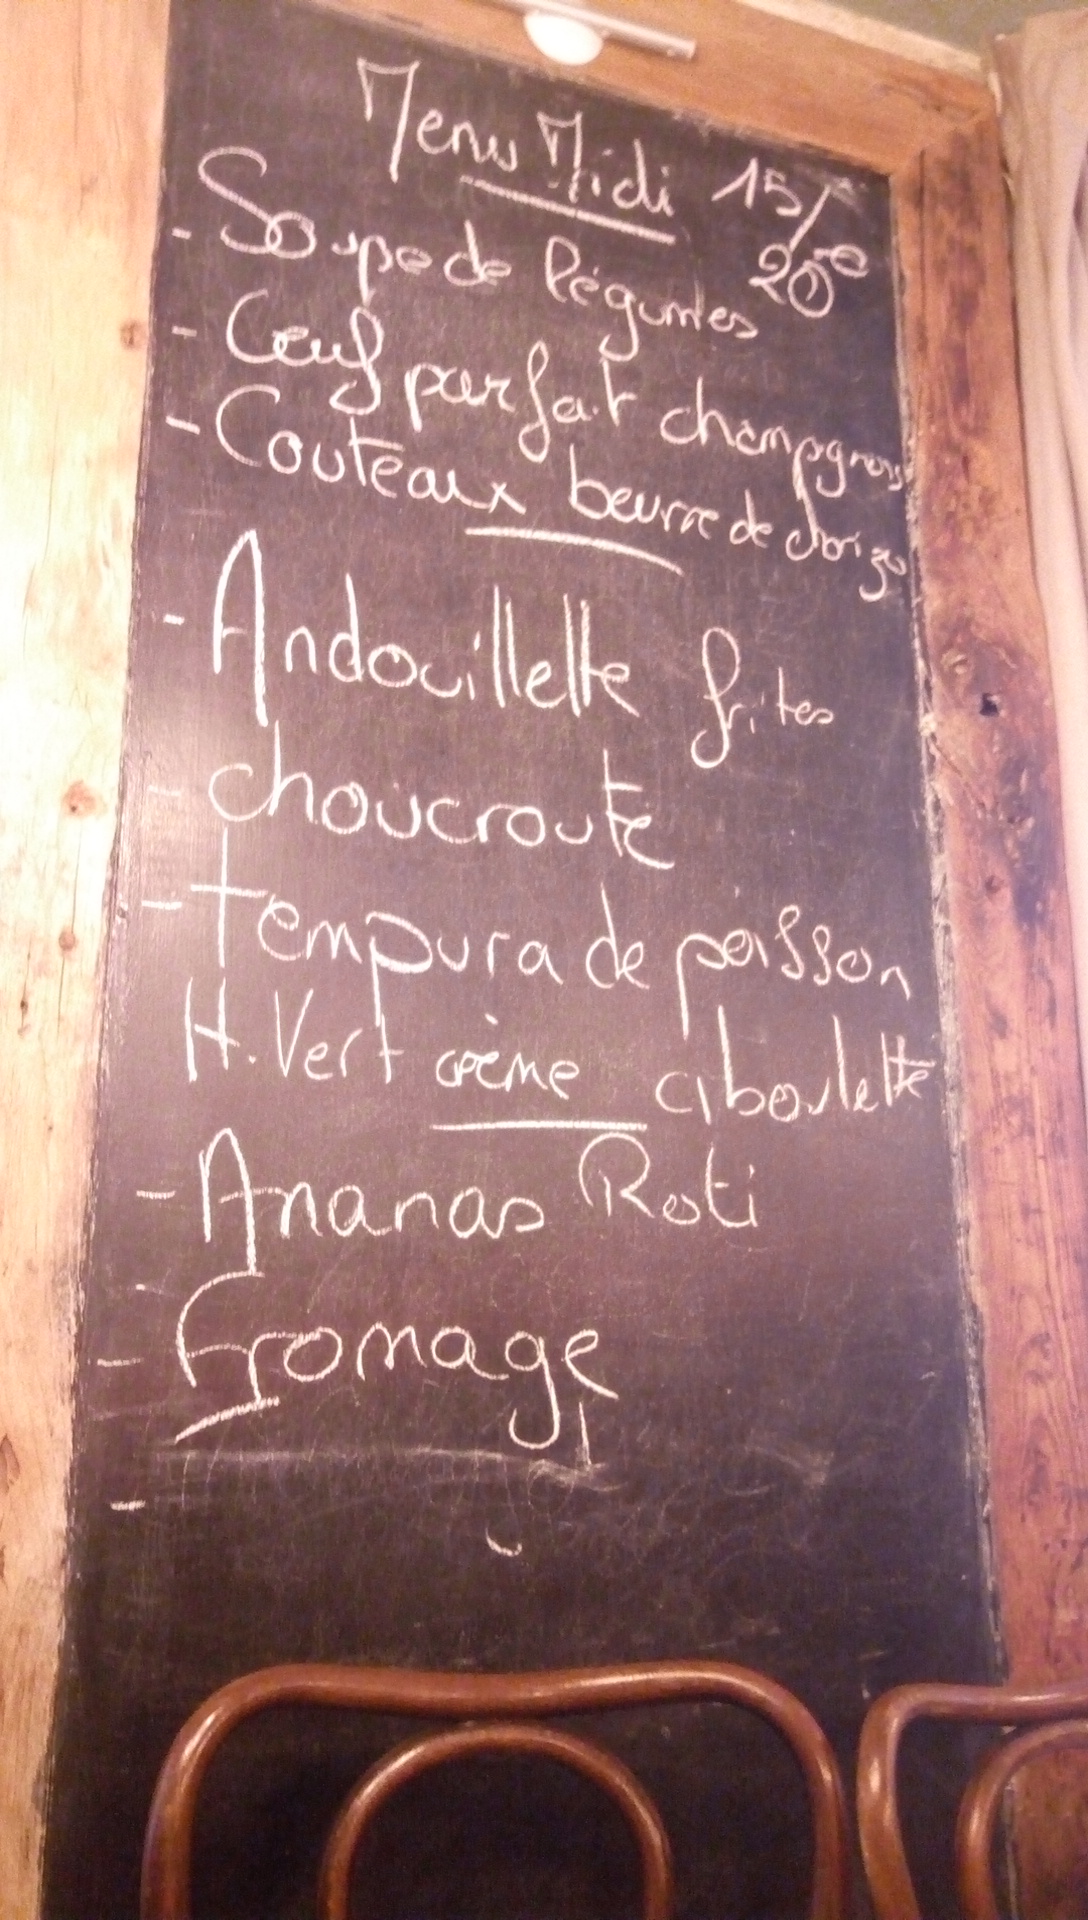 Menu Midi 15/
20€
- Soupe de légumes
- Oeuf parfait champignons
- Couteaux beurre de chorizo
- Andouillette frites
- choucroute
- tempura de poisson
H. Vert crème ciboulette
- Ananas Roti
- Fromage
-